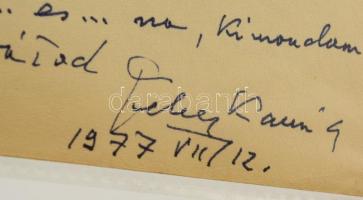 ... es ... na, kimondom
barátod
1977 VII/12.
darabanth